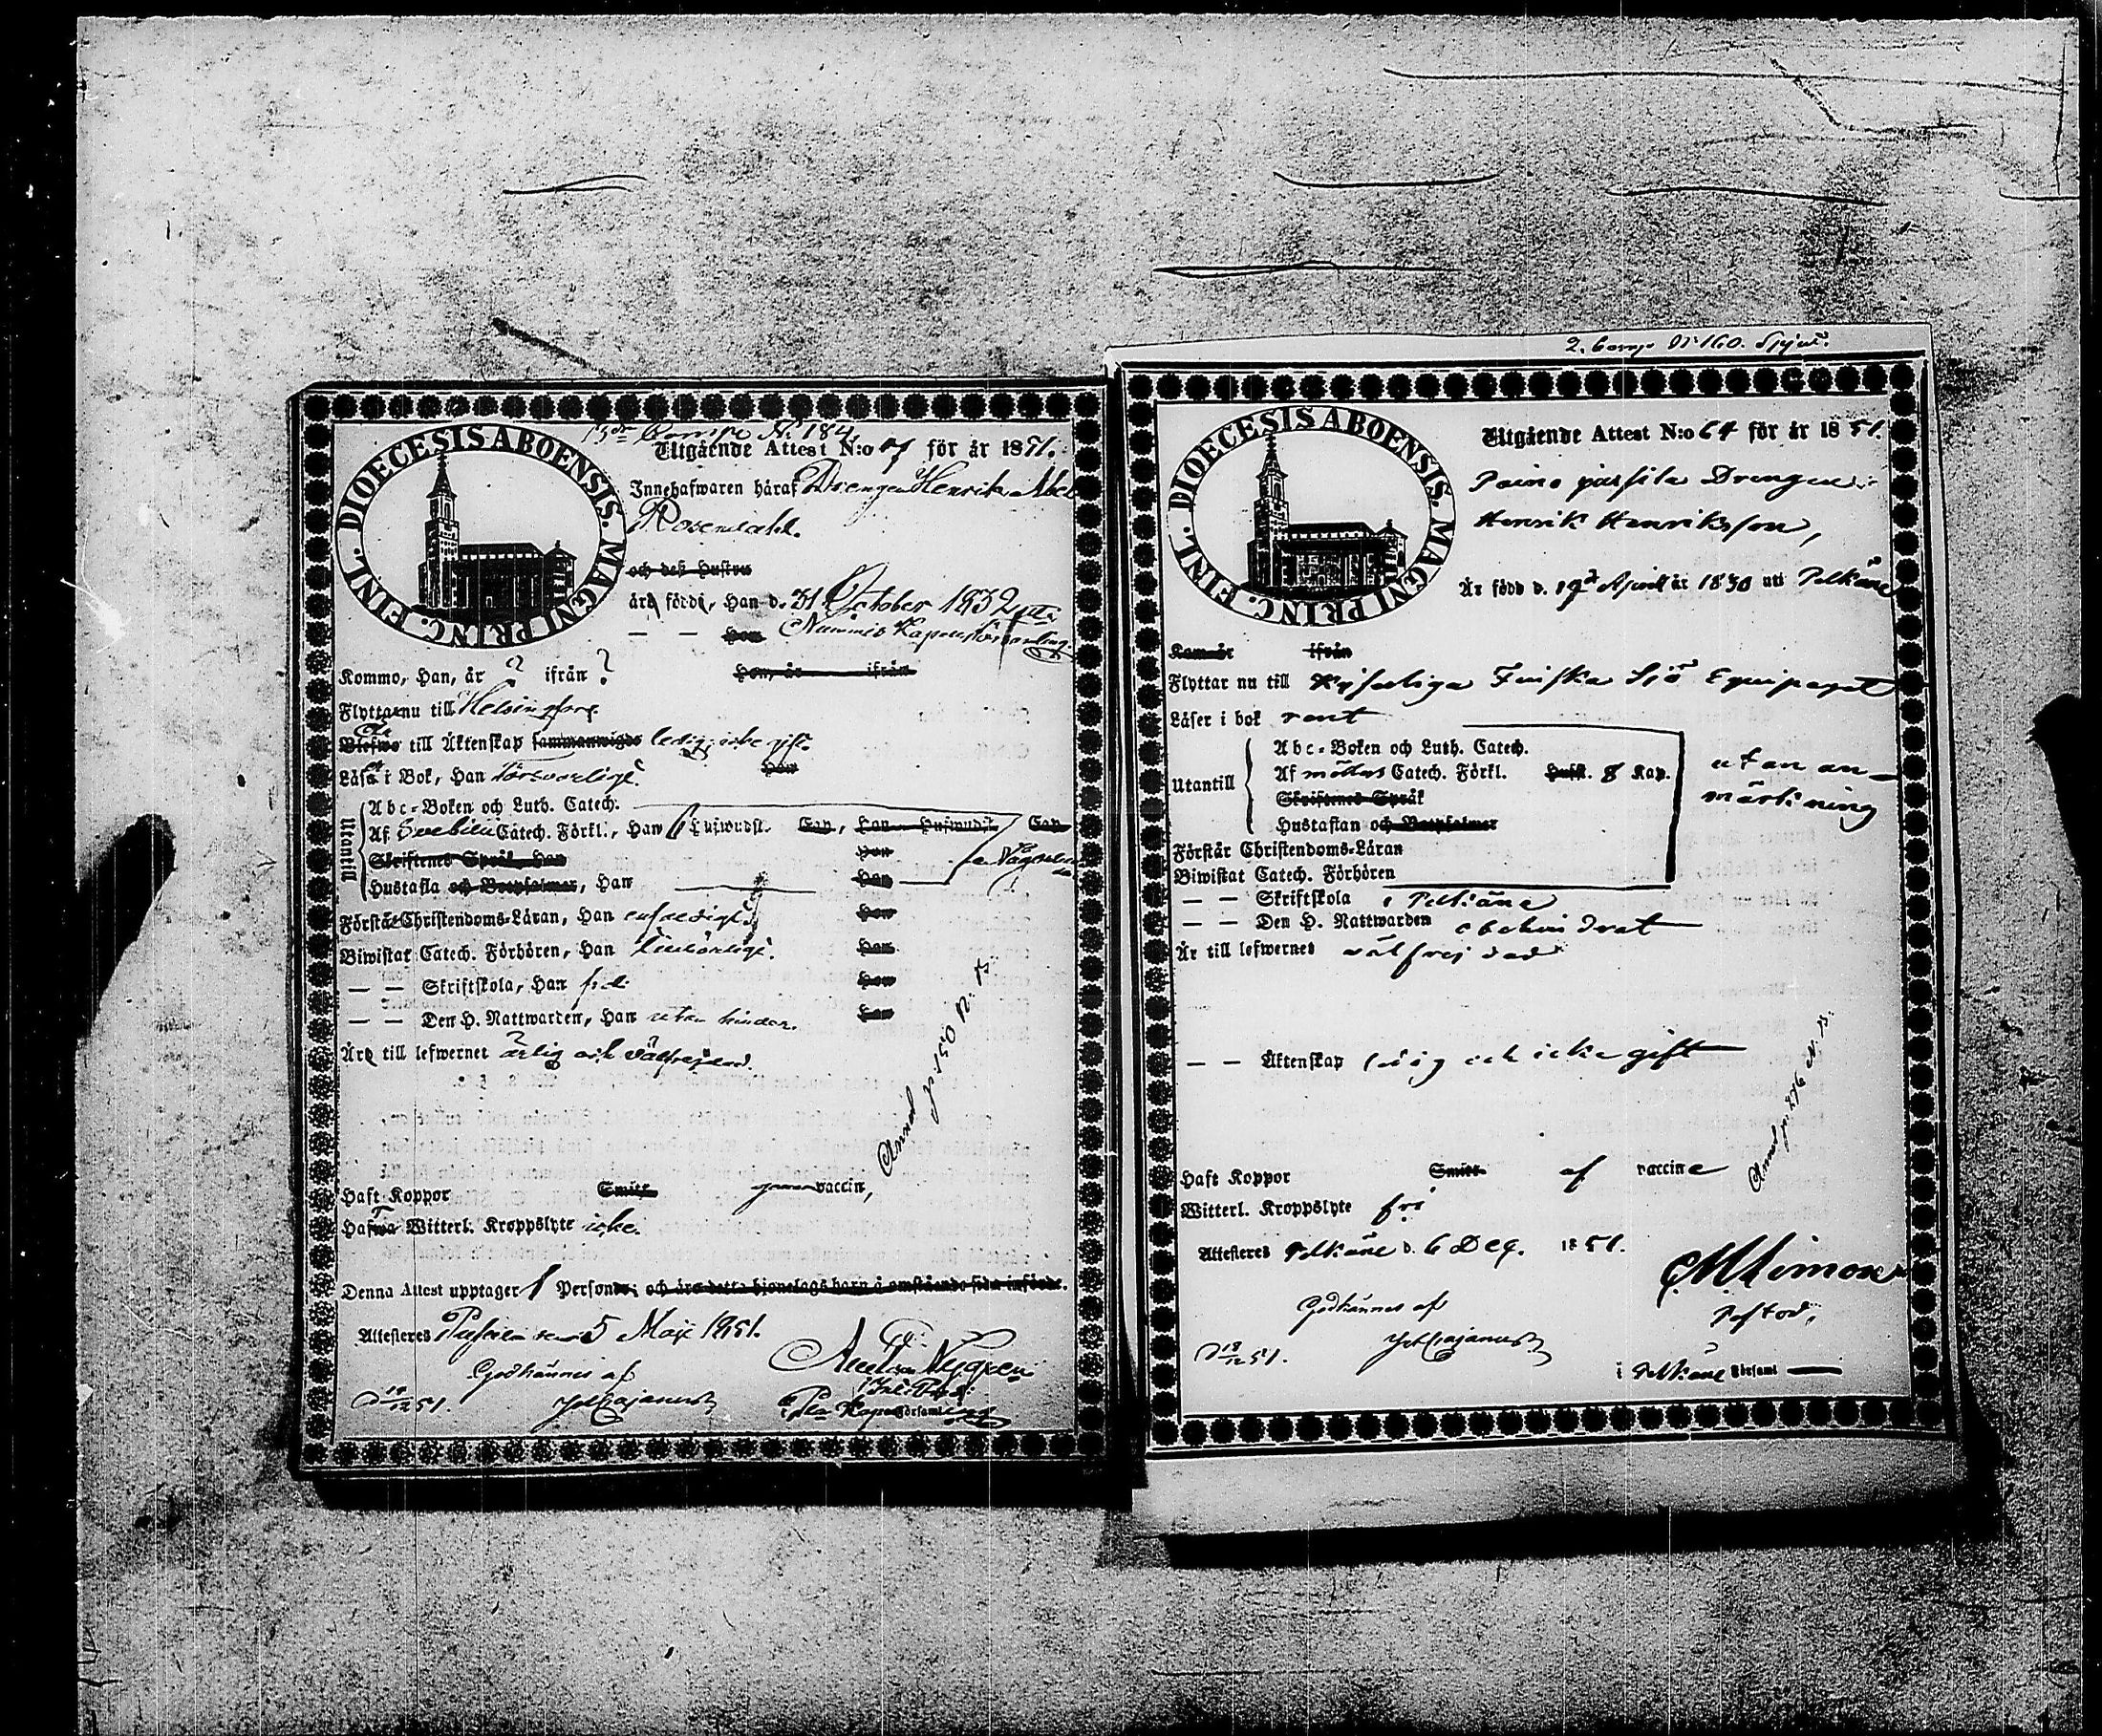 DIOECESIS ABOENSIS. MAGNI PRINC. FINL.
Comp. N: 184
Utgående Attest N:o 7 för år 1851.
Innehafwaren häraf Drengen Henrik Abel
Rosendahl.
och deß Hustru
äro födde, Han d. 31 October 1832
— — Hon Nummis Kapellförsamling
Kommo, Han, år ? ifrån ? Hon, år ifrån
Flytta nu till Helsingfors
Är till Äktenskap sammanwigde ledig, icke gift.
Läser i Bok, Han försvarligt. Hon
Utantill
Abc-Boken och Luth. Catech.
Af Svebilii Catech. Förkl., Han Hufwudst. Cap, Hon Hufwudst. Cap
Skriftenes Språk, Han Hon
Hustafla och Botpsalmer, Han Hon
Förstår Christendoms-Läran, Han enfaldigt. Hon
Biwistat Catech. Förhören, Han Hon
— — Skriftskola, Han Hon
— — Den H. Nattwarden, Han utan hinder. Hon
Är till lefwernet ärlig och välfrejdad.
Annot. p. 150 N. B.
Haft Koppor Smitt genom vaccin,
Haft Witterl. Kroppslyte icke.
Denna Attest upptager 1 Person; och äro detta hjonelags barn å omstående sida införde.
Attesteras Pusula den 5 Maji 1851.
Godkännes af
D 18/12 51.
Nygren
DIOECESIS ABOENSIS. MAGNI PRINC. FINL.
2. Comp. N: 160.
Utgående Attest N:o 64 för år 1851.
Drengen
Henrik Henriksson,
Är född d. 19 April år 1830 uti Pelkäne
Kom år ifrån
Flyttar nu till Kejserliga Finska Sjö Equipaget
Läser i bok rent
Utantill
Abc-Boken och Luth. Catech.
Af möllers Catech. Förkl. Hufst. 8 Kap.
Skriftenes Språk
Hustaflan och Botpsalmer
utan an-
märkning
Förstår Christendoms-Läran
Biwistat Catech. Förhören
— — Skriftskola i Pelkäne
— — Den H. Nattwarden obehindrat
Är till lefwernes välfrejdad
— — Äktenskap ledig och icke gift
Annot. p. 276 N. B.
Haft Koppor Smitt af vaccine
Witterl. Kroppslyte fri
Attesteres Pelkäne d. 6 Dec. 1851.
Pastor,
Godkännes af
D 18/12 51.
i Pelkäne Församl